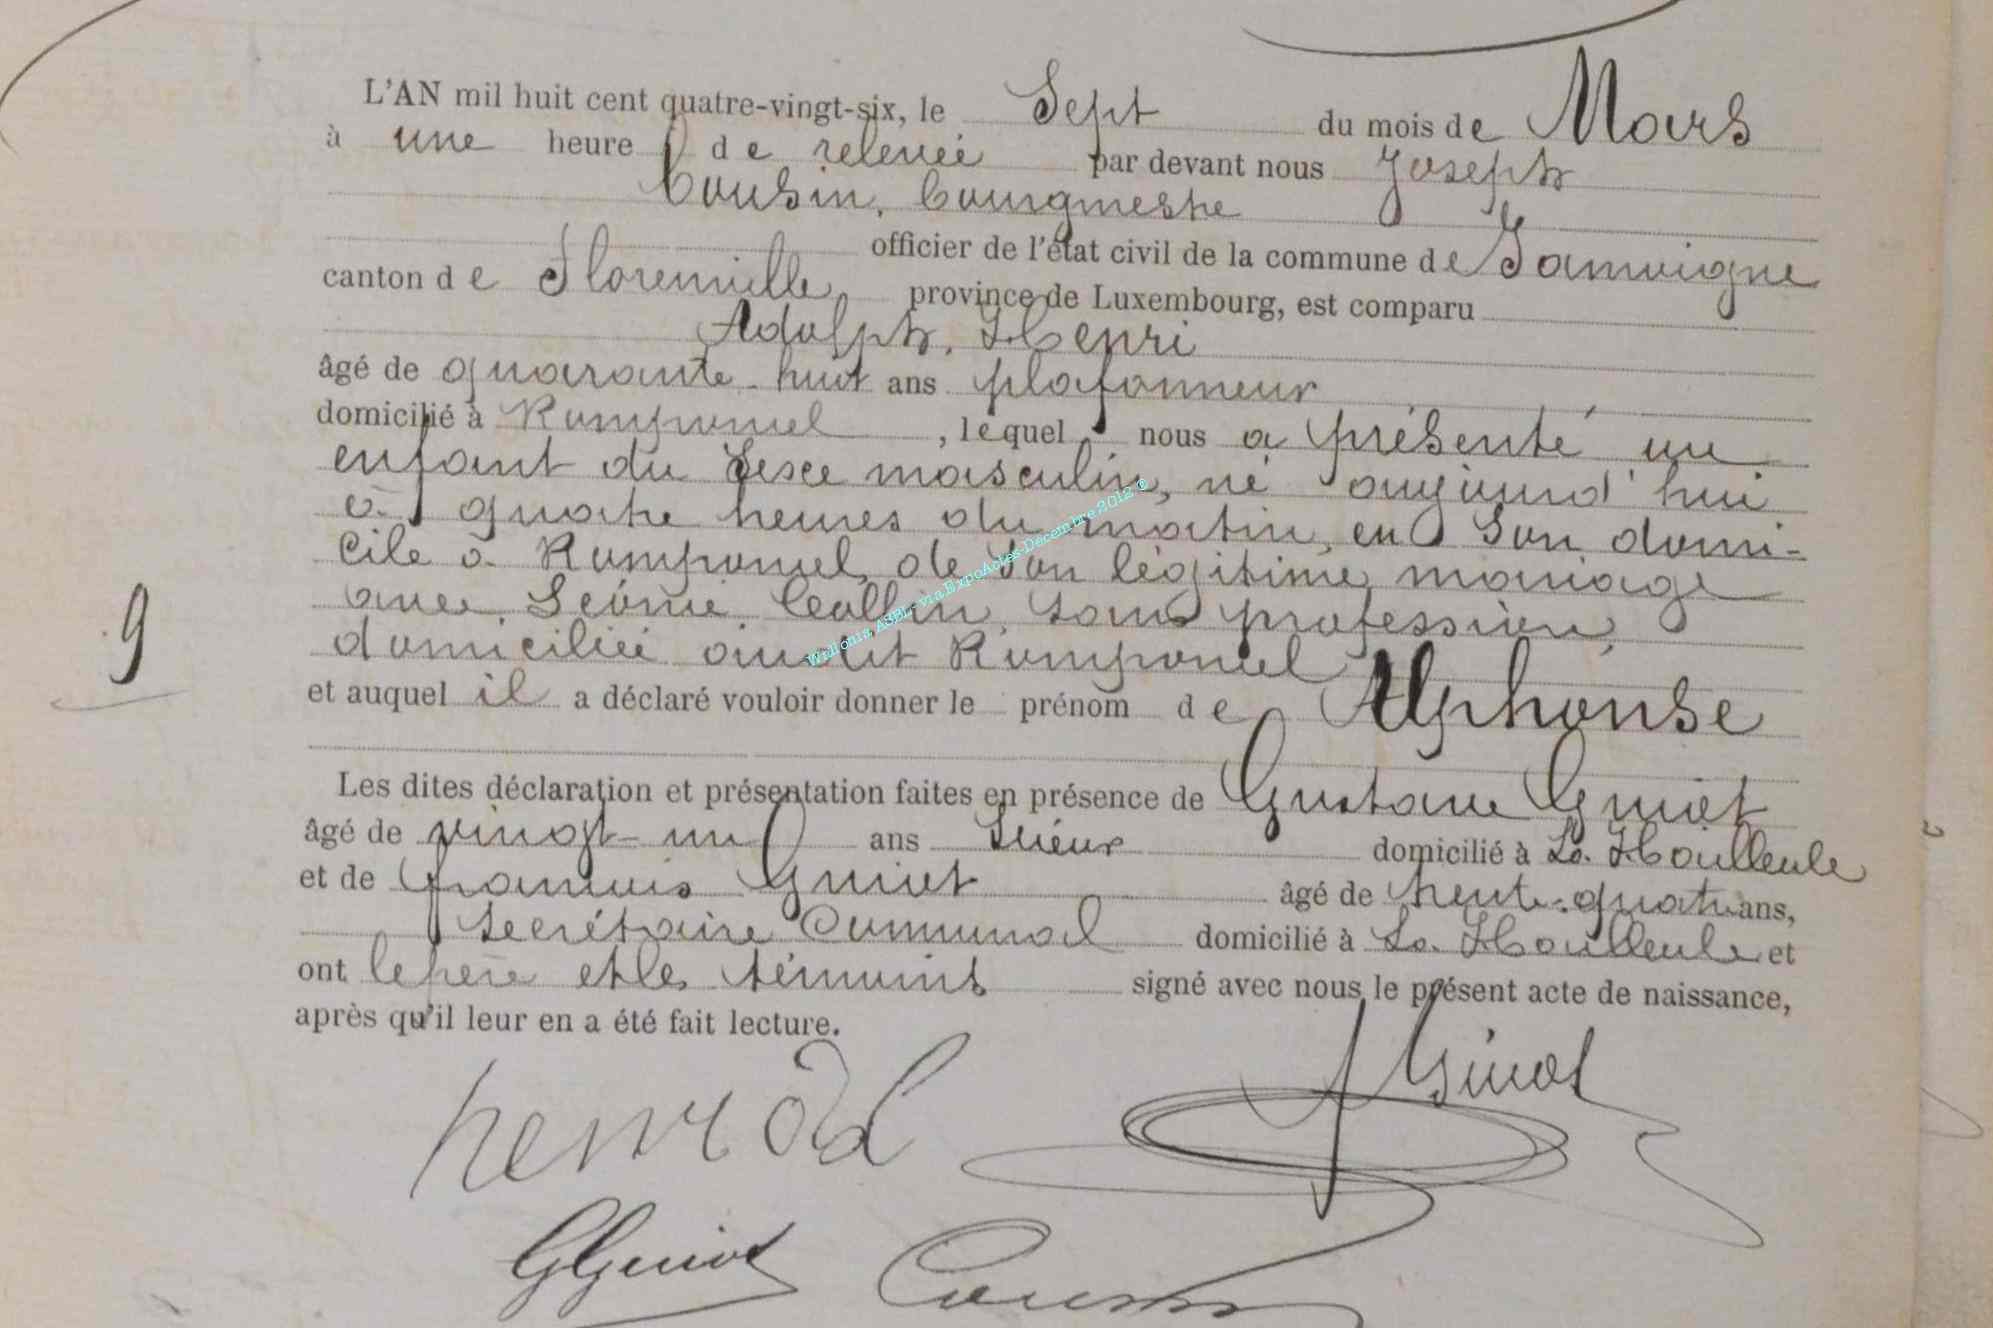 L'AN mil huit cent quatre-vingt-six, le Sept du mois de Mars
à une heure de relevée par devant nous Joseph
Cousin, bourgmestre
officier de l'état civil de la commune de Jamoigne
canton de Florenville, province de Luxembourg, est comparu
Adolph. Henri
âgé de quarante-huit ans plafonneur
domicilié à Romponcel, lequel nous a présenté un
enfant du sexe masculin, né aujourd'hui
à quatre heures du matin, en son domi-
cile à Romponcel, de son légitime mariage
avec Léonie Collin, sans profession,
domiciliée audit Romponcel
et auquel il a déclaré vouloir donner le prénom de Alphonse
9
Les dites déclaration et présentation faites en présence de Gustave Guiot
âgé de vingt-un ans domicilié à La Hailleule
et de François Guiot âgé de trente-quatre ans,
Secrétaire Communal domicilié à La Hailleule et
ont le père et les témoins signé avec nous le présent acte de naissance,
après qu'il leur en a été fait lecture.
henri ad
Guiot
GGuiot
Cousin
Wallonia ASBL via ExpoActes-Decembre 2012 ©